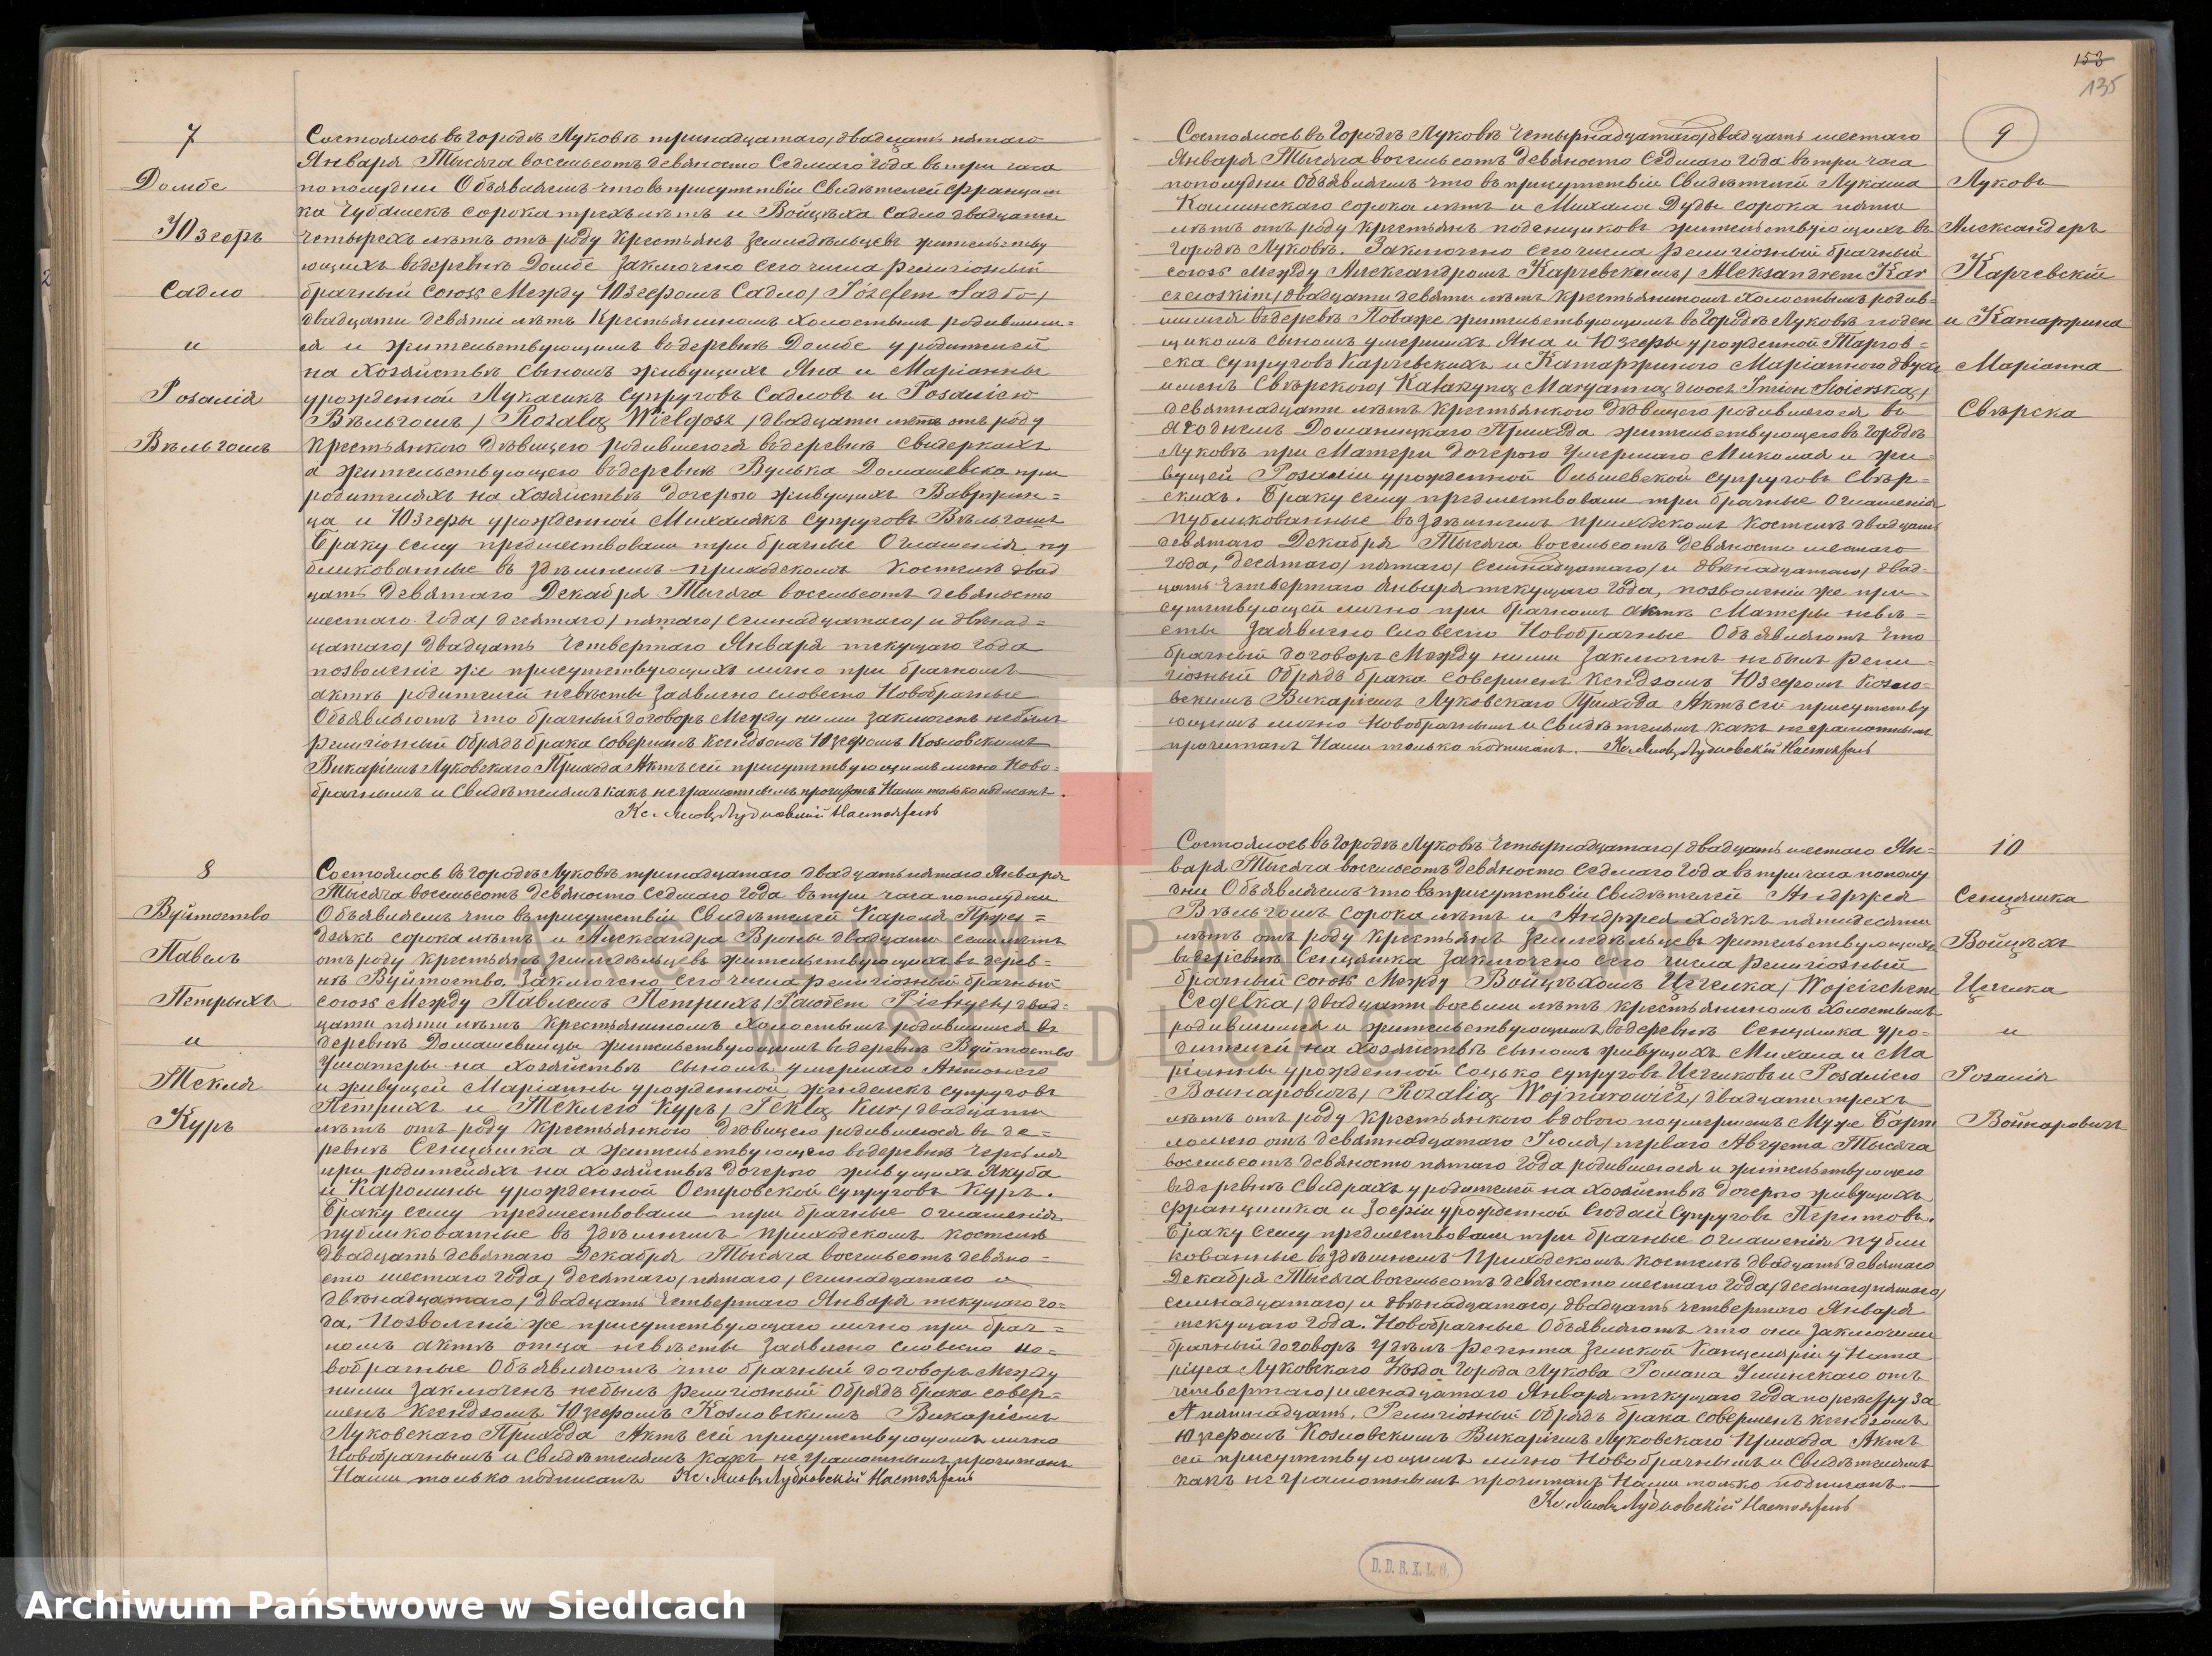 7
Домбе
Юзефъ
Садло
и
Розалія
Вѣльгошъ
Состоялось въ городѣ Луковѣ тринадцатаго/двадцать пятаго
Января Тысяча восемьсотъ девяносто Седьмаго года въ три часа
пополудни Объявляемъ что въ присутствіи Свидѣтелей Франциш
ка Чубашекъ сорока трехъ лѣтъ и Войцѣха Садло двадцати
четырехъ лѣтъ отъ роду крестьянъ земледѣльцевъ жительству
ющихъ въ деревнѣ Домбе Заключено сего числа религіозный
брачный союзъ Между Юзефомъ Садло/Józefem Sadło/
двадцати девяти лѣтъ Крестьяниномъ холостымъ родившим=
ся и жительствующимъ въ деревнѣ Домбе у родителей
на хозяйствѣ сыномъ живущихъ Яна и Маріанны
урожденной Лукасикъ Супруговъ Садловъ и Розаліею
Вѣльгошъ/Rozalą Wielgosz/двадцати лѣтъ отъ роду
Крестьянкою Дѣвицею родившеюся въ деревнѣ Свидеркахъ
а жительствующею въ деревнѣ Вулька Домашевска при
родителяхъ на хозяйствѣ дочерью живущихъ Вавржин=
ца и Юзефы урожденной Михалякъ супруговъ Вѣльгошъ
Браку сему предшествовали три брачные Оглашенія пу
бликованные въ здѣшнемъ приходскомъ костелѣ двад
цать девятаго Декабря Тысяча восемьсотъ девяносто
шестаго года/десятаго/пятаго/семнадцатаго/и двѣнад=
цатаго/двадцать четвертаго Января текущаго года
позволеніе же присутствующихъ лично при брачномъ
актѣ родителей невѣсты Заявлено словесно Новобрачные
Объявляютъ что брачный договоръ Между ними заключенъ небылъ
религіозный Обрядъ брака совершенъ Ксендзомъ Юзефомъ Козловскимъ
Викаріемъ Луковскаго Прихода Актъ сей присутствующимъ лично Ново=
брачнымъ и Свидѣтелямъ какъ неграмотнымъ прочитанъ Нами только подписанъ.
8
Вуйтоство
Павелъ
Петрыхъ
и
Текля
Куръ
Состоялось въ городѣ Луковѣ тринадцатаго двадцать пятаго Января
Тысяча восемьсотъ девяносто Седьмаго года въ три часа пополудни
Объявляемъ что въ присутствіи Свидѣтелей Кароля Пржез=
дзякъ сорока лѣтъ и Александра Вроны двадцати семи лѣтъ
отъ роду крестьянъ земледѣльцевъ жительствующихъ въ дерев=
нѣ Вуйтоство. Заключено сего числа религіозный брачный
союзъ Между Павломъ Петрыхъ/Pawłem Pietrych/двад=
цати пяти лѣтъ Крестьяниномъ холостымъ родившимся въ
деревнѣ Домашевницы жительствующимъ въ деревнѣ Вуйтоство
у матери на хозяйствѣ сыномъ умершаго Антонего
и живущей Маріанны урожденной супруговъ
Петрыхъ и Теклею Куръ/Teklą Kur/двадцати
лѣтъ отъ роду Крестьянкою дѣвицею родившеюся въ де=
ревнѣ Сенцяшка а жительствующею въ деревнѣ
при родителяхъ на хозяйствѣ дочерью живущихъ Якуба
и Каролины урожденной Островской супруговъ Куръ.
Браку сему предшествовали три брачные оглашенія
публикованные въ здѣшнемъ приходскомъ костелѣ
двадцать девятаго Декабря Тысяча восемьсотъ девяно=
сто шестаго года/десятаго/пятаго/семнадцатаго и
двѣнадцатаго/двадцать четвертаго Января текущаго го=
да. Позволеніе же присутствующаго лично при брач=
номъ актѣ отца невѣсты Заявлено словесно Но=
вобрачные Объявляютъ что брачный договоръ Между
ними Заключенъ небылъ религіозный Обрядъ брака совер=
шенъ Ксендзомъ Юзефомъ Козловскимъ Викаріемъ
Луковскаго Прихода Актъ сей присутствующимъ лично
Новобрачнымъ и Свидѣтелямъ какъ неграмотнымъ прочитанъ
Нами только подписанъ
153
135
9
Луковъ
Александеръ
Карчевскій
и Катаржина
Маріанна
Свѣрска
Состоялось въ Городѣ Луковѣ четырнадцатаго/двадцать шестаго
Января Тысяча восемьсотъ девяносто Седьмаго года въ три часа
пополудни Объявляемъ что въ присутствіи Свидѣтелей Лукаша
Каминскаго сорока лѣтъ и Михала Дуды сорока пяти
лѣтъ отъ роду крестьянъ поденщиковъ жительствующихъ въ
городѣ Луковѣ. Заключено сего числа религіозный брачный
союзъ Между Александромъ Карчевскимъ/Aleksandrem Kar
czewskim/двадцати девяти лѣтъ крестьяниномъ холостымъ родив=
шимся въ деревнѣ Поважe жительствующимъ въ городѣ Луковѣ поден
щикомъ сыномъ умершихъ Яна и Юзефы урожденной Таргов=
ска супруговъ Карчевскихъ и Катаржиною Маріанною двухъ
именъ Свѣрскою/Katarzyną Maryanną dwoch Imion Swierską/
девятнадцати лѣтъ крестьянкою дѣвицею родившеюся въ
Ягоднемъ Доманицкаго Прихода жительствующею въ городѣ
Луковѣ при Матери дочерью Умершаго Миколая и жи=
вущей Розаліи урожденной Ольшевской супруговъ Свѣр=
скихъ. Браку сему предшествовали три брачные Оглашенія
публикованные въ здѣшнемъ приходскомъ костелѣ двадцать
девятаго Декабря Тысяча восемьсотъ девяносто шестаго
года, десятаго/пятаго/семнадцатаго/и двѣнадцатаго/двад=
цать четвертаго января текущаго года, позволеніе же при=
сутствующей лично при брачномъ актѣ Матери невѣ=
сты Заявлено словесно Новобрачные Объявляютъ что
брачный договоръ Между ними Заключенъ небылъ рели=
гіозный Обрядъ брака совершенъ Ксендзомъ Юзефомъ Козло=
вскимъ Викаріемъ Луковскаго Прихода Актъ сей присутству
ющимъ лично Новобрачнымъ и Свидѣтелямъ какъ неграмотнымъ
прочитанъ Нами только подписанъ.
10
Сенцяшка
Войцѣхъ
Цегелка
и
Розалія
Войнаровичъ
Состоялось въ городѣ Луковѣ четырнадцатаго/двадцать шестаго Ян=
варя Тысяча восемьсотъ девяносто Седьмаго года въ три часа пополу
дни Объявляемъ что въ присутствіи Свидѣтелей Анджея
Вѣльгошъ сорока лѣтъ и Анджея Хоякъ пятидесяти
лѣтъ отъ роду крестьянъ Земледѣльцевъ жительствующихъ
въ деревнѣ Сенцяшка Заключено сего числа религіозный
брачный союзъ Между Войцѣхомъ Цегелка/Wojciechem
Cegelka/двадцати восьми лѣтъ крестьяниномъ холостымъ
родившимся и жительствующимъ въ деревнѣ Сенцяшка у ро=
дителей на хозяйствѣ сыномъ живущихъ Михала и Ма
ріанны урожденной супруговъ Цегелковъ и Розаліею
Войнаровичъ/Rozalią Wojnarowicz/двадцати трехъ
лѣтъ отъ роду Крестьянкою вдовою по умершемъ Мужѣ Барт
ломею отъ девятнадцатаго Іюля/перваго Августа Тысяча
восемьсотъ девяносто пятаго года родившеюся и жительствующею
въ деревнѣ у родителей на хозяйствѣ дочерью живущихъ
Францишка и Зофіи урожденной супруговъ
Браку сему предшествовали три брачные оглашенія публи
кованные въ здѣшнемъ Приходскомъ костелѣ двадцать девятаго
Декабря Тысяча восемьсотъ девяносто шестаго года/десятаго/пятаго/
семнадцатаго/и двѣнадцатаго/двадцать четвертаго Января
текущаго года. Новобрачные Объявляютъ что они Заключили
брачный договоръ Регента Земской Канцеляріи у Нота
ріуса Луковскаго Уѣзда Города Лукова Романа отъ
четвертаго/шеснадцатаго Января текущаго года по реестру за
№ пятнадцать. Религіозный Обрядъ брака совершенъ ксендзомъ
Юзефомъ Козловскимъ Викаріемъ Луковскаго Прихода Актъ
сей присутствующимъ лично Новобрачнымъ и Свидѣтелямъ
какъ неграмотнымъ прочитанъ Нами только подписанъ
ARCHIWUM PAŃSTWOWE
W SIEDLCACH
Archiwum Państwowe w Siedlcach